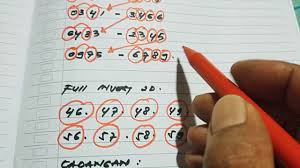 0341 - 3456
6433 - 2345
0975 - 6789
FULL INVEST 2D.
46. 47. 48. 49
56. 57. 58. 59
CADANGAN: